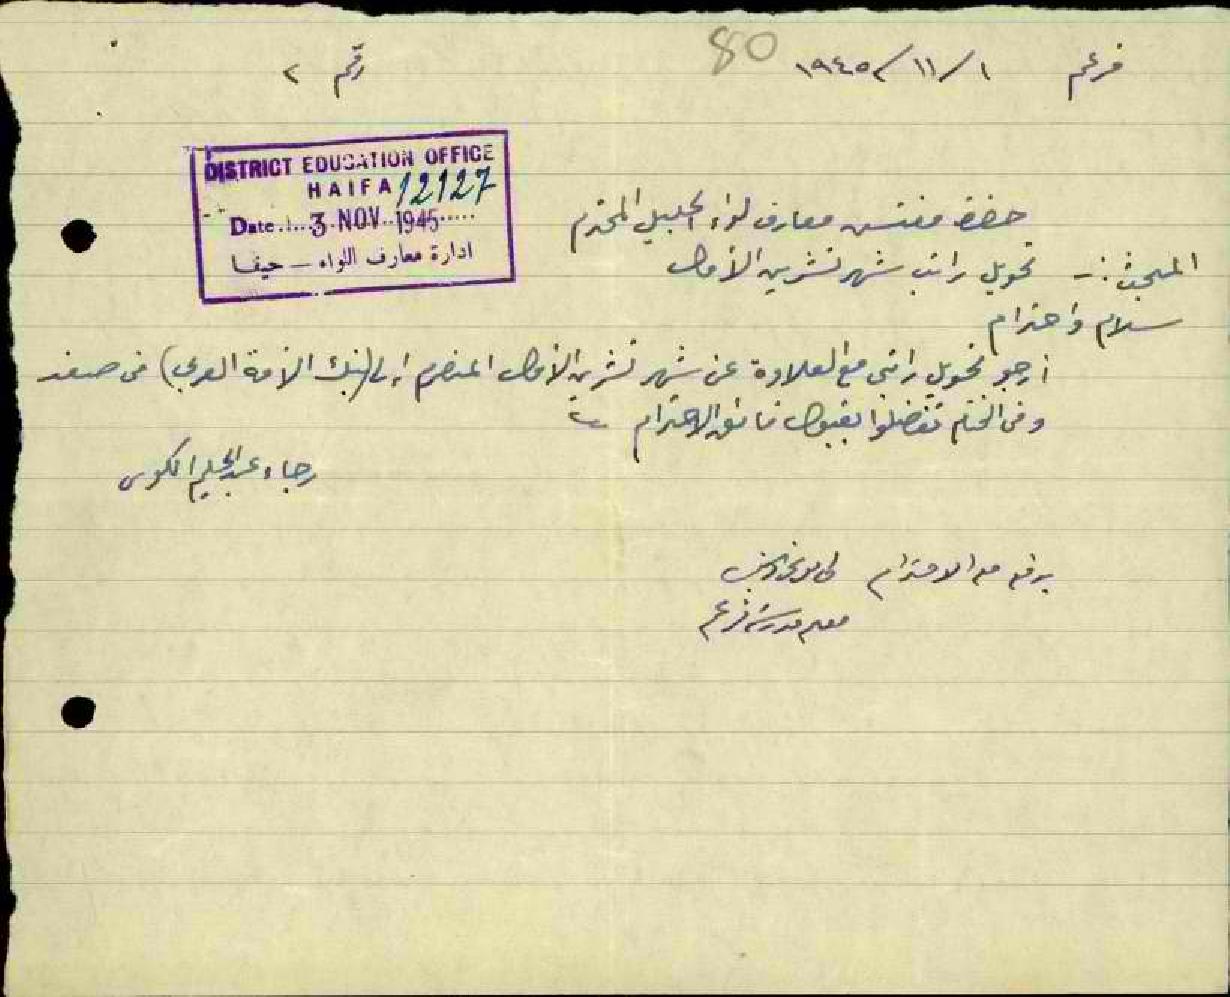 80
فرعم ١/١١/١٩٤٥ رقم ٢
DISTRICT EDUCATION OFFICE
HAIFA 12127
Date 3 NOV 1945
ادارة معارف اللواء – حيفا
حضرة مفتش معارف لواء الجليل المحترم
المبحث :- تحويل راتب شهر تشرين الأول
سلام واحترام
أرجو تحويل راتبي مع العلاوة عن شهر تشرين الأول المنصرم الى (بنك الأمة العربي) في صفد
وفي الختام تفضلوا بقبول فائق الاحترام
رجاء عبد الحليم
يرفع مع الاحترام
معلم مدرسة فرعم